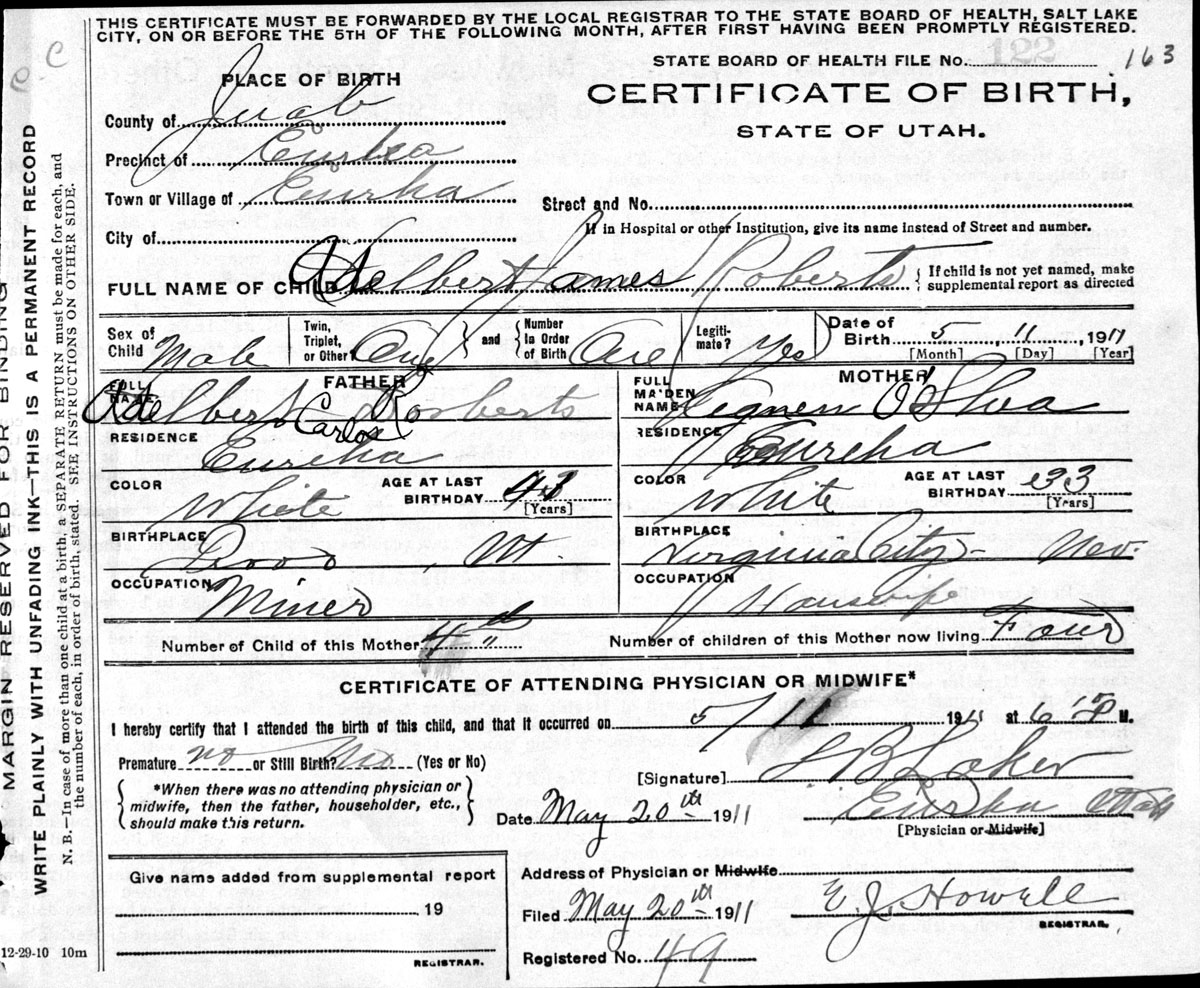 THIS CERTIFICATE MUST BE FORWARDED BY THE LOCAL REGISTRAR TO THE STATE BOARD OF HEALTH, SALT LAKE
CITY, ON OR BEFORE THE 5TH OF THE FOLLOWING MONTH, AFTER FIRST HAVING BEEN PROMPTLY REGISTERED.
STATE BOARD OF HEALTH FILE No. 163
PLACE OF BIRTH
CERTIFICATE OF BIRTH,
STATE OF UTAH.
County of Juab
Precinct of Eurka
Town or Village of Eurka
Street and No.
City of
If in Hospital or other Institution, give its name instead of Street and number.
FULL NAME OF CHILD Adelbert James Roberts { If child is not yet named, make
supplemental report as directed
Sex of Child Male
Twin, Triplet, or Other } One
and { Number in Order of Birth One
Legiti-mate? Yes
Date of Birth 5 11, 1911
[Month] [Day] [Year]
FATHER
FULL NAME Adelbert C Roberts
Carlos
RESIDENCE Eureka
COLOR White
AGE AT LAST BIRTHDAY 43
[Years]
BIRTHPLACE Vt
OCCUPATION Miner
MOTHER
FULL MAIDEN NAME O'Shea
RESIDENCE Eureka
COLOR White
AGE AT LAST BIRTHDAY 33
[Years]
BIRTHPLACE Virginia City - Nev.
OCCUPATION Housewife
Number of Child of this Mother 4th
Number of children of this Mother now living Four
CERTIFICATE OF ATTENDING PHYSICIAN OR MIDWIFE*
I hereby certify that I attended the birth of this child, and that it occurred on 5/11, 1911 at 6 P M.
Premature no or Still Birth? No (Yes or No)
{ *When there was no attending physician or
midwife, then the father, householder, etc.,
should make this return. }
[Signature]
Date May 20th 1911
Eurka Utah
[Physician or Midwife]
Give name added from supplemental report
19
REGISTRAR.
Address of Physician or Midwife
Filed May 20th 1911
E. J. Howell
REGISTRAR.
Registered No. 49
12-29-10 10m
MARGIN RESERVED FOR BINDING
WRITE PLAINLY WITH UNFADING INK—THIS IS A PERMANENT RECORD
N. B.—In case of more than one child at a birth, a SEPARATE RETURN must be made for each, and
the number of each, in order of birth, stated. SEE INSTRUCTIONS ON OTHER SIDE.